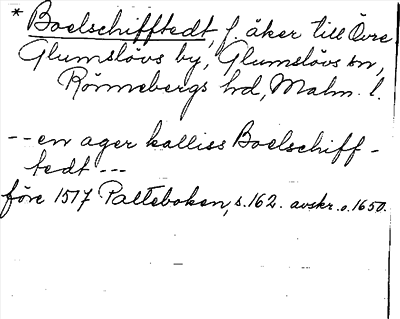 * Boelschifftedt, f. åker till Övre
Glumslövs by, Glumslövs sn,
Rönnebergs hd, Malm. l.
-- en ager kalliss Boelschiff-
tedt ---
före 1517 Palteboken, s. 162. avskr. o. 1650.